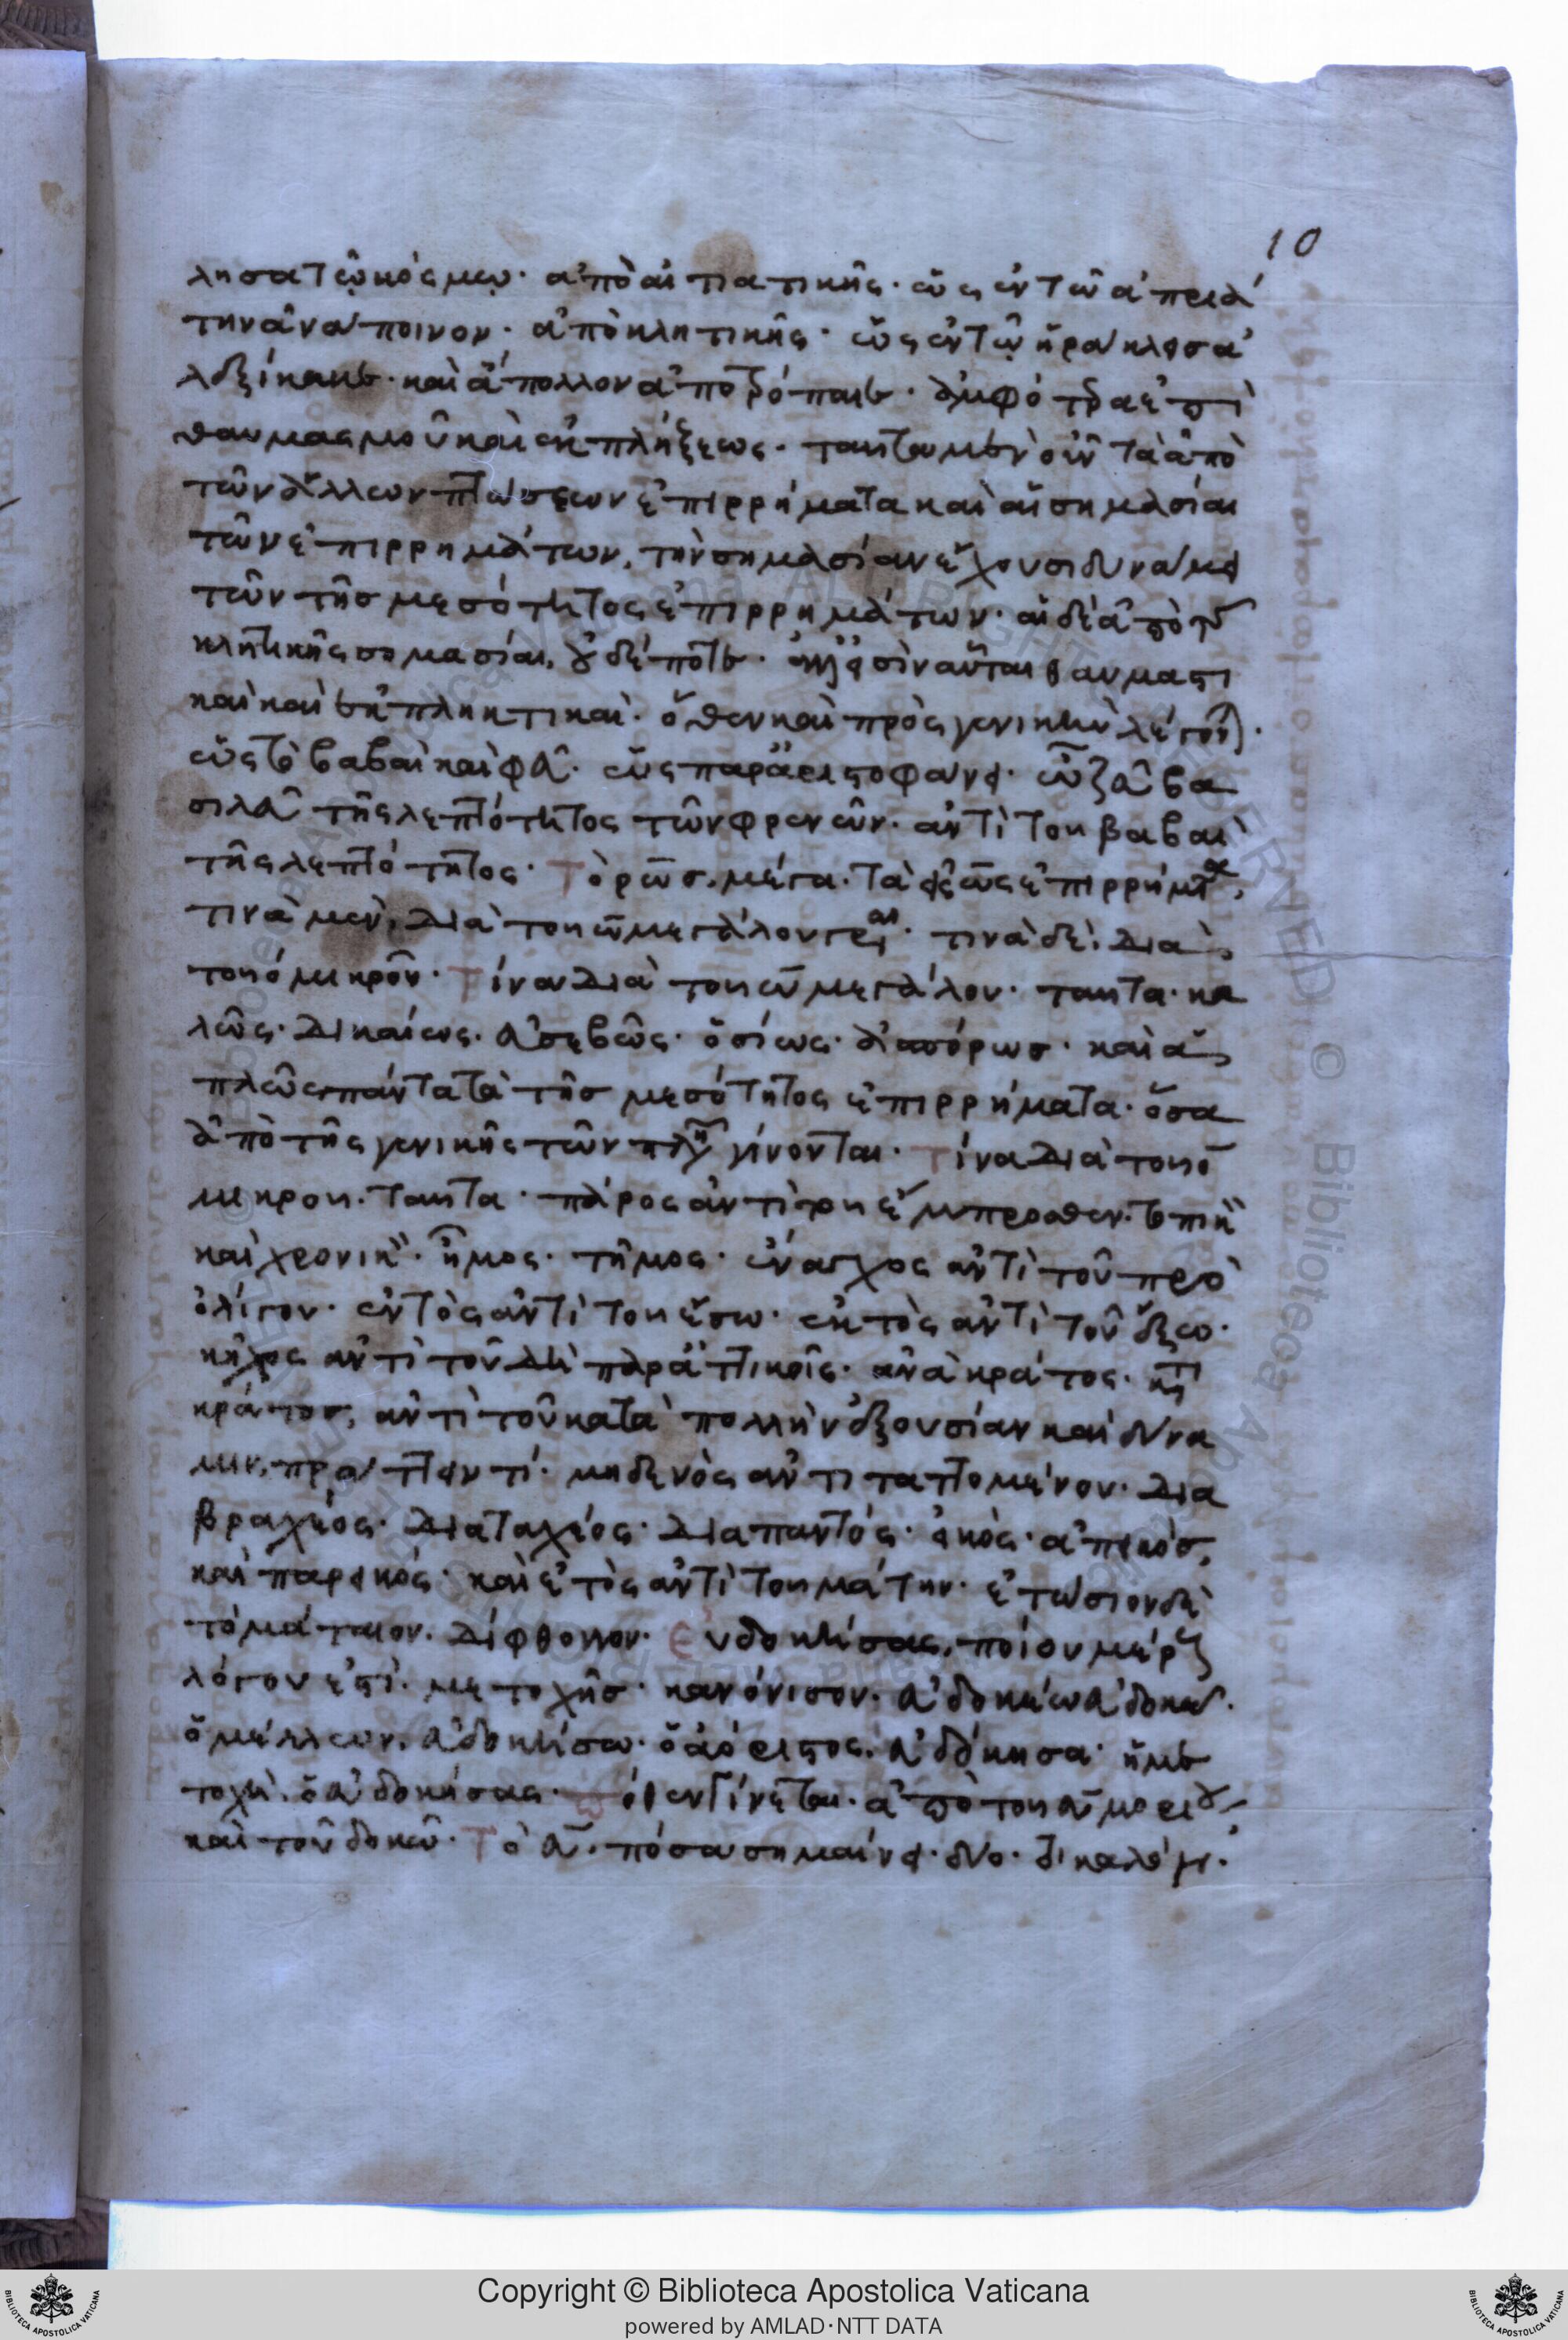 10
λησα τῶ κόσμω· ἀπὸ αἰτιατικῆς· ὡς ἐν τῶ ἀπριά
την ἀνάποινον· ἀπὸ κλητικῆς· ὡς ἐν τῶ ἡράκλεισ ἀ
λεξίκακε· καὶ ἄπολλον ἀποτρόπαιε· ἀμφότεραι ἐπὶ
θαυμασμοῦ καὶ ἐκπλήξεως· ταῦτα μὲν οὖν τὰ ἀπὸ
τῶν ἄλλων πτώσεων ἐπιρρήματα καὶ αἱ σημασίαι
τῶν ἐπιρρημάτων, τὴν σημασίαν ἔχουσι δυνάμει
τῶν τῆς μεσότητος ἐπιρρημάτων· αἱ δὲ ἀπὸ τῆς
κλητικῆς σημασίαι, οὐδέποτε· ἀλλ' εἰσὶν αὗται θαυμαστι
καὶ καὶ ἐκπληκτικαὶ· ὅθεν καὶ πρὸς γενικὴν λέγονται·
ὡς τὸ βαβαὶ καὶ φεῦ· ὡς παρὰ ἀριστοφάνει· ὦ ζεῦ βα
σιλεῦ τῆς λεπτότητος τῶν φρενῶν· ἀντὶ τοῦ βαβαὶ
τῆς λεπτότητος· Τὸ ρως, μέγα· τὰ εἰς ως ἐπιρρήματα,
τινὰ μὲν, διὰ τοῦ ω μεγάλου γράφεται· τινὰ δὲ, διὰ
τοῦ ο μικροῦ· Τίνα διὰ τοῦ ω μεγάλου· ταῦτα· κα
λῶς· δικαίως· εὐσεβῶς· ὁσίως· εὐπόρως· καὶ ἁ
πλῶς πάντα τὰ τῆς μεσότητος ἐπιρρήματα· ὅσα
ἀπὸ τῆς γενικῆς τῶν πληθυντικῶν γίνονται· Τίνα διὰ τοῦ ο
μικροῦ· ταῦτα· πάρος ἀντὶ τοῦ ἔμπροσθεν· τοπικὸν
καὶ χρονικὸν· ἦμος· τῆμος· ἔναγχος ἀντὶ τοῦ πρὸ
ὀλίγου· ἐντὸς ἀντὶ τοῦ ἔσω· ἐκτὸς ἀντὶ τοῦ ἔξω·
ἀντὶ τοῦ· ἀνὰ κράτος· κατὰ
κράτος, ἀντὶ τοῦ κατὰ πολλὴν ἐξουσίαν καὶ δύνα
μιν, πράττειν τί· μηδενὸς ἀντιταττομένου· δια
βραχέος· διαταχέος· διαπαντός· εἰκός· ἀπεικός,
καὶ παρεικός· καὶ ἐτὸς ἀντὶ τοῦ μάτην· ἐτώσιον δὲ
τὸ μάταιον. δίφθογγον· Εὐδοκήσας, ποίου μέρους
λόγου ἐστὶ· μετοχῆς· κανόνισον· εὐδοκέω εὐδοκῶ·
ὁ μέλλων, εὐδοκήσω· ὁ ἀόριστος, εὐδόκησα· ἡ με
τοχὴ, ὁ εὐδοκήσας· πόθεν γίνεται· ἀπὸ τοῦ εὖ μορίου,
καὶ τοῦ δοκῶ· Τὸ εὖ· πόσα σημαίνει· δύο· τὸ καλὸν·
Copyright © Biblioteca Apostolica Vaticana
powered by AMLAD·NTT DATA